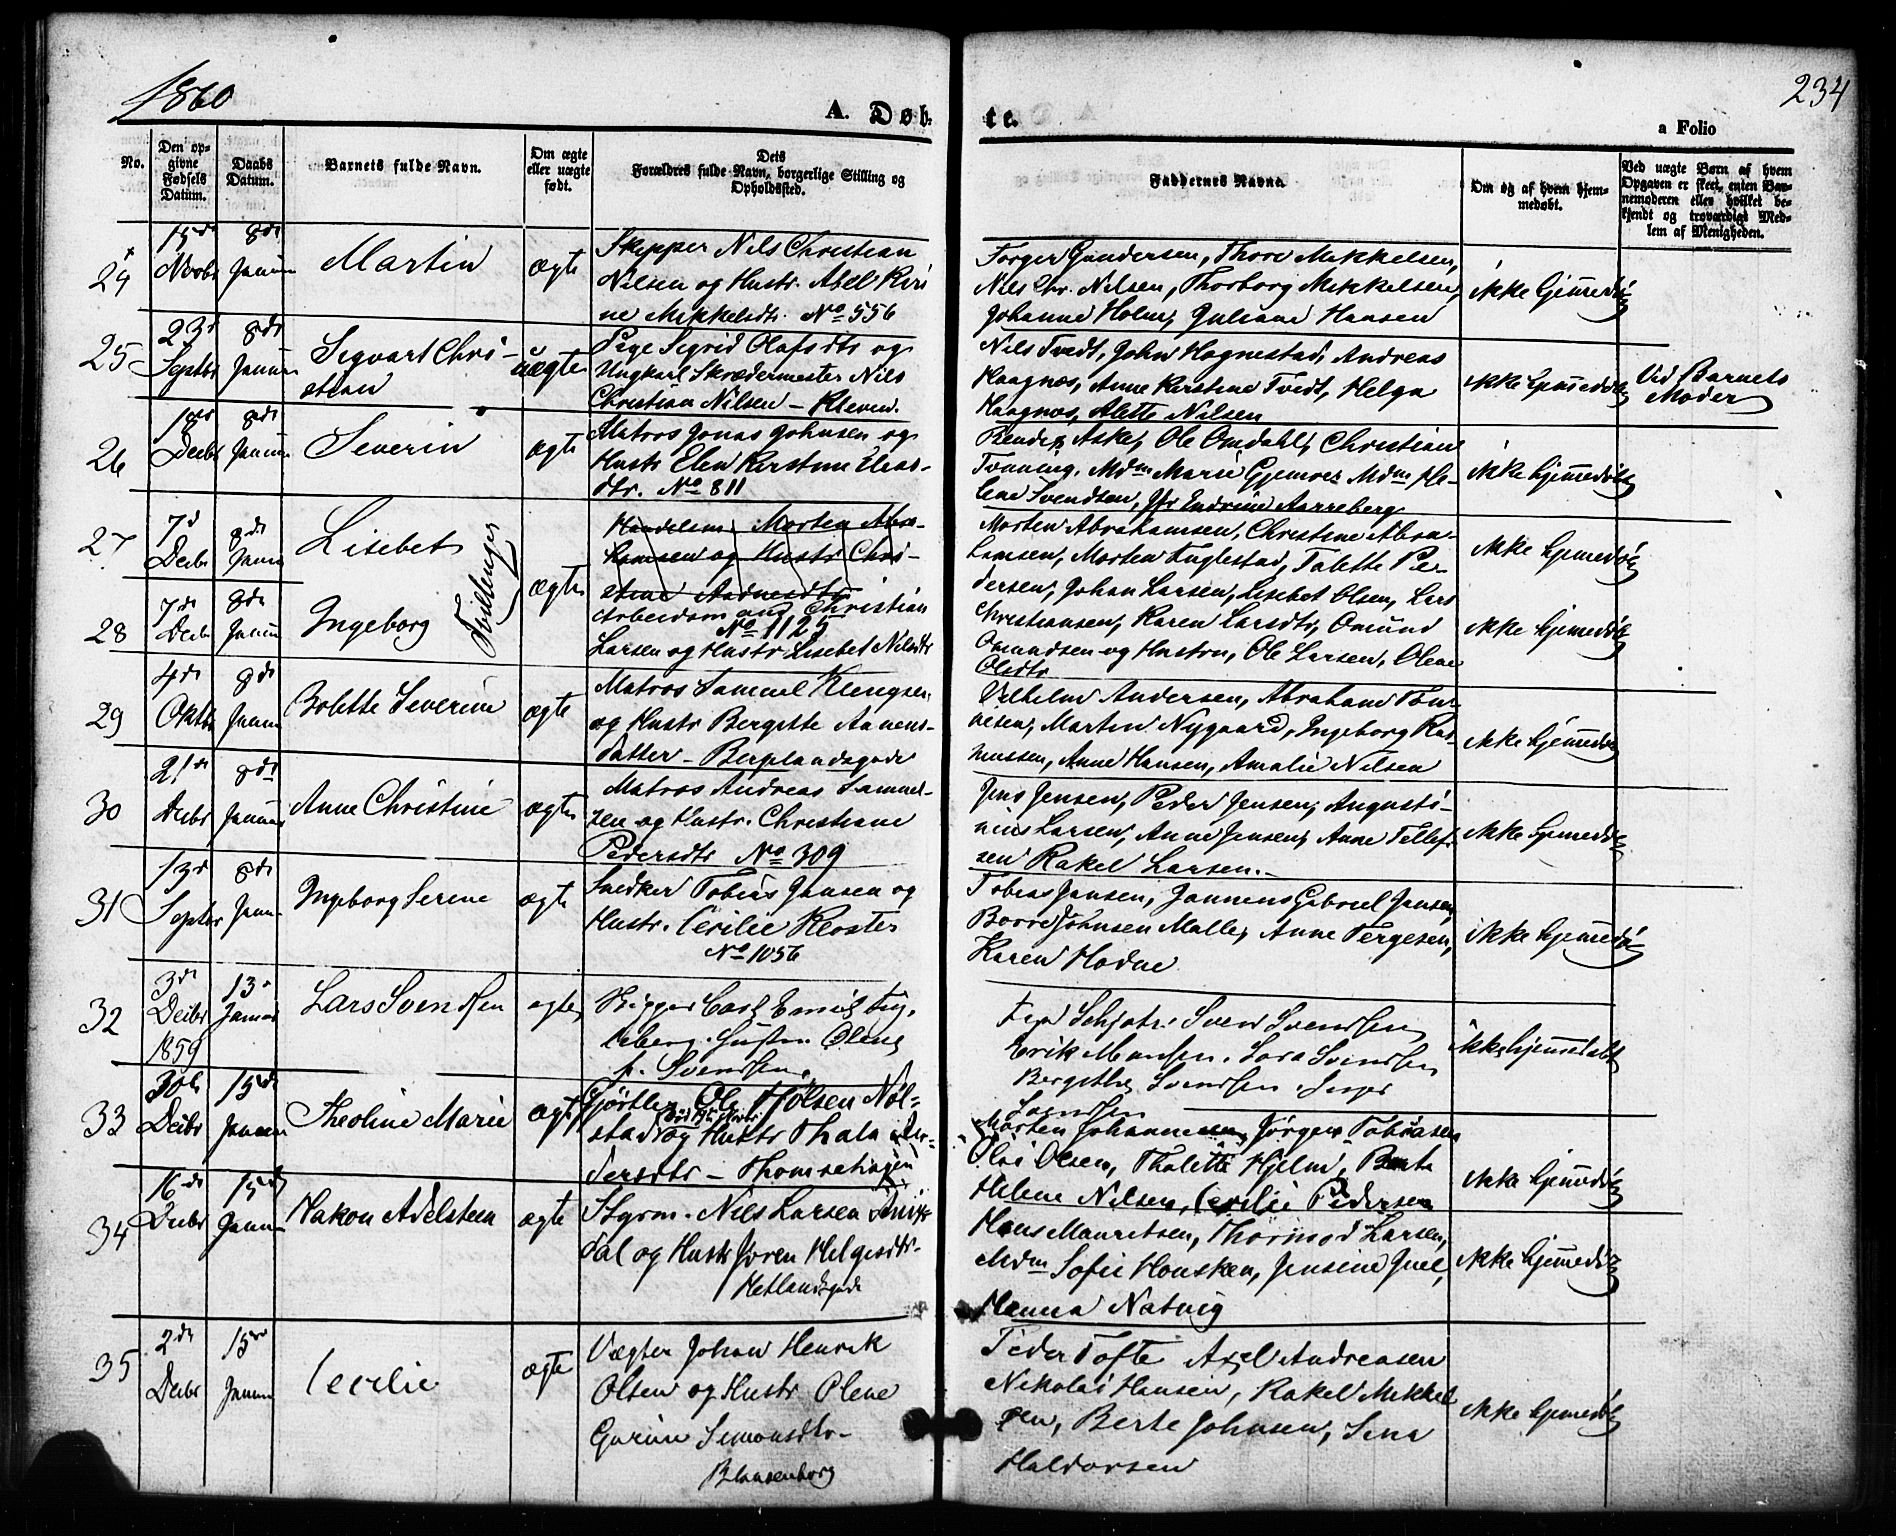 1860
A. Døb-
te.
234
a Folio
No.
Den op-
givne
Fødsels
Datum.
Daabs
Datum.
Barnets fulde Navn.
Om ægte
eller uægte
født.
Dets
Forældres fulde Navn, borgerlige Stilling og
Opholdssted.
Faddernes Navne
Om og af hvem hjem-
medøbt.
Ved uægte Børn af hvem
Opgaven er skeet, enten Bar-
nemoderen eller hvilket be-
kjendt og troværdigt Med-
lem af Menigheden.
24
15de
Novbr
8de
Januar
Martin
ægte
Skipper Nils Christian
Nilsen og Hustr. Abel Kiri
ne Mikkelsdtr. No 556
Torger Gundersen, Thore Mikkelsen,
Nils Chr. Nilsen, Thorborg Mikkelsen,
Johanne Holm, Juliane Hansen
ikke hjemmedøbt
25
23d
Septbr
8de
Januar
Sigvart Chri-
stian
uægte
Pige Sigrid Olafsdtr og
Ungkarl Skrædermester Nils
Christian Nilsen - Kleven.
Nils Tvedt, John Hognestad, Andreas
Haagnes, Anne Kirstine Tvedt, Helga
Haagnes, Alette Nilsen
ikke hjemmedøbt
Vid Barnets
Moder
26
18de
Decbr
8de
Januar
Severin
ægte
Matros Jonas Johnsen og
Hustr Elen Kirstine Elias-
dtr. No 811
Bendix Aske, Ole Omdahl, Christian
Tonning, Mdm Marie Gjemre, Mdm He-
lene Svendsen, Jfr Endrine Aarreberg
ikke hjemmedøbt
27
7d
Decbr
8de
Janu
Lisebet
Tvillinger
ægte
Handelsm. Morten Abra-
hamsen og Hustr Chri-
stine Aadnesdtr
Morten Abrahamsen, Christine Abra-
hamsen, Morten Fuglestad, Talette Pe-
dersen, Johan Larsen, Lisebet Olsen, Lars
ikke hjemmedøbt
28
7de
Decbr
8de
Januar
Ingeborg
Arbeidsmand Christian
No 1125
Larsen og Hustr Lisebet Nilsdtr
Christiansen, Karen Larsdtr, Omund
Omundsen og Hustru, Ole Larsen, Olene
Olsdtr
ikke hjemmedøbt
29
4de
Oktbr
8de
Januar
Bolette Severine
ægte
Matros Samuel Klengsen
og Hustr Bergitte Aanens-
datter - Berglandsgade
Vilhelm Andersen, Abraham Tøn-
nesen, Martin Nygaard, Ingeborg Ras-
mussen, Anne Hansen, Amalie Nilsen
ikke hjemmedøbt
30
21de
Decbr
8de
Januar
Anne Christine
ægte
Matros Andreas Samuel-
sen og Hustr. Christiane
Pedersdtr No 309
Jens Jensen, Peder Jensen, Augusti-
nius Larsen, Anne Jensen, Anne Tellef-
sen Rakel Larsen.
ikke hjemmedøbt
31
13d
Septbr
8de
Janu.
Ingeborg Serine
ægte
Snedker Tobias Jansen og
Hustr. Cecilie Kloster
No 1056
Tobias Jansen, Jannens Gabriel Jansen,
Borre Johnsen Malle, Anne Tergesen,
Karen Hodne
ikke hjemmedøbt
32
3de
Decbr
1859
13.
Januar
Lars Svendsen
ægte
Rigger Carl Emil
Hustru Olene
f. Svendsen.
Schjøtt. Svend Svendsen
Erik Monsen. Sara Svendsen
Bergithe Svendsen.
Svendsen
ikke hjemmedøbt
33
30te
Decbr
15de
Januar
Theoline Marie
ægte
Gjørtler Ole Nølsen Nøl-
stad og Hustr Thala An-
dersdtr -
Morten Johannesen, Jørgen Tobiasen
Olai Olsen, Thalette Hjelm, Berte
Helene Nilsen, Cecilie Pedersen
ikke hjemmedøbt
34
16de
Decbr
15de
Januar
Hakon Adelsteen
ægte
Styrm. Niels Larsen
dal og Hustr Jøren Helgesdtr.
Hetlandsgade
Hans Mauritsen, Thormod Larsen,
Mdm Sofie Housken, Jensine Juel,
Hanna Natvig
ikke hjemmedøbt
35
2de
Decbr
15de
Januar
Cecilie
ægte
Vægter Johan Henrik
Olsen og Hustr Olene
Gurine Simonsdtr-
Blausenborg
Peder Tofte Axel Andreasen
Nikolai Hansen, Rakel Mikkel
sen, Berte Johnsen, Sina
Haldorsen
ikke hjemmedøbt